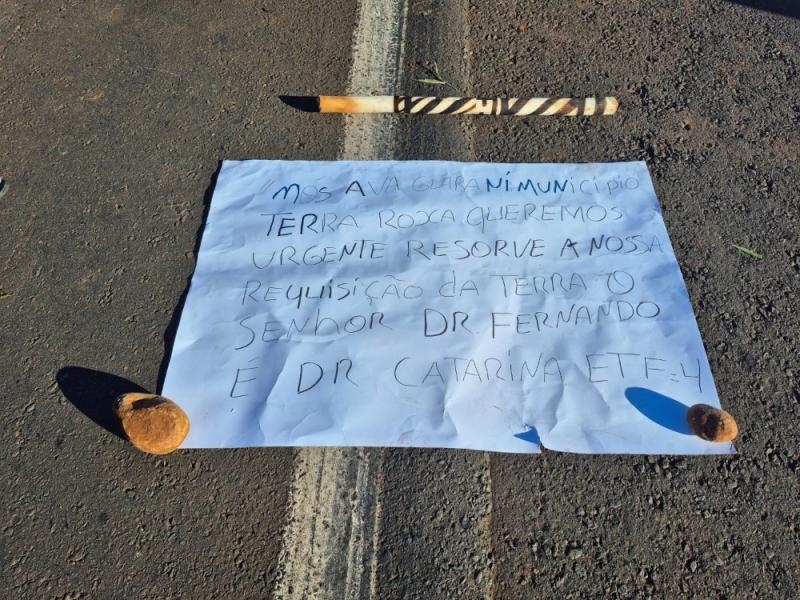 "MOS AVA GUIRA NÍ MUNICÍPIO
TERRA ROXA QUEREMOS
URGENTE RESORVE A NOSSA
REQUISIÇÃO DA TERRA O
SENHOR DR FERNANDO
E DR CATARINA ETF=4